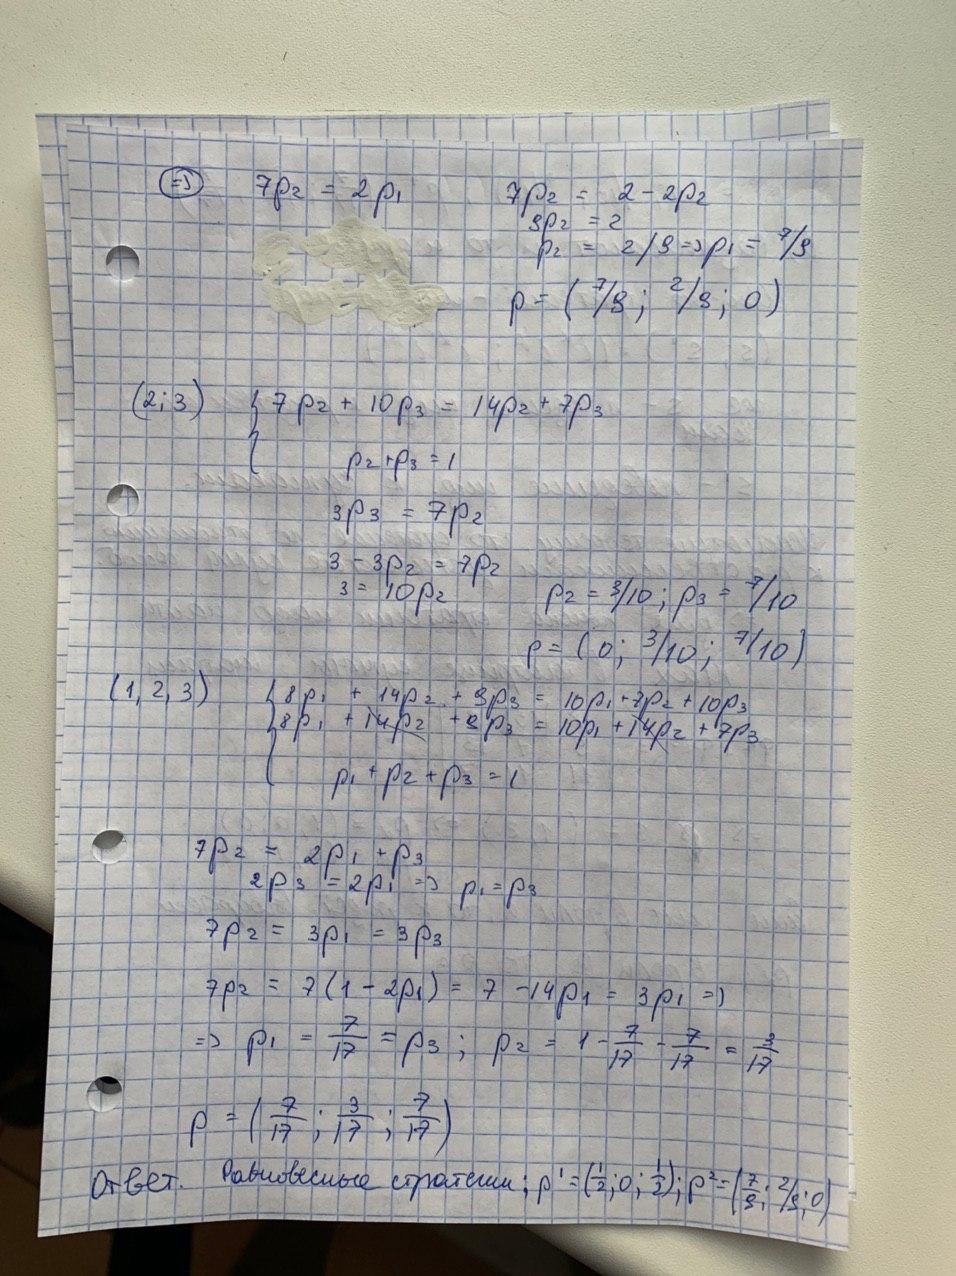 => 7p₂ = 2p₁
7p₂ = 2 - 2p₂
9p₂ = 2
p₂ = 2/9 => p₁ = 7/9
p = (7/9; 2/9; 0)
(2; 3) { 7p₂ + 10p₃ = 14p₂ + 7p₃
p₂ + p₃ = 1
3p₃ = 7p₂
3 - 3p₂ = 7p₂
3 = 10p₂
p₂ = 3/10; p₃ = 7/10
p = (0; 3/10; 7/10)
(1, 2, 3) { 8p₁ + 14p₂ + 9p₃ = 10p₁ + 7p₂ + 10p₃
8p₁ + 14p₂ + 9p₃ = 10p₁ + 14p₂ + 7p₃
p₁ + p₂ + p₃ = 1
7p₂ = 2p₁ + p₃
2p₃ = 2p₁ => p₁ = p₃
7p₂ = 3p₁ = 3p₃
7p₂ = 7(1 - 2p₁) = 7 - 14p₁ = 3p₁ =>
=> p₁ = 7/17 = p₃; p₂ = 1 - 7/17 - 7/17 = 3/17
p = (7/17; 3/17; 7/17)
Ответ. Равновесные стратегии; p¹ = (1/2; 0; 1/2); p² = (7/9; 2/9; 0)